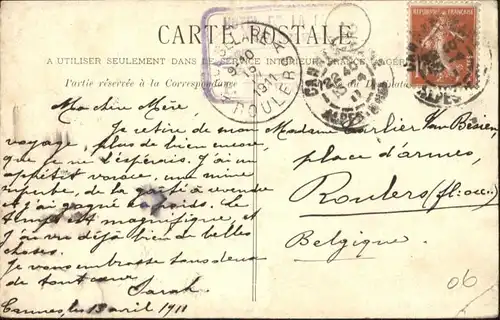 CARTE POSTALE
A UTILISER SEULEMENT DANS LE SERVICE INTÉRIEUR FRANCE, ALGÉRIE
Partie réservée à la Correspondance
ROULERS
1911
ALPES
RÉPUBLIQUE FRANÇAISE
Ma chère Mère
Je retire de mon
voyage, plus de bien encore,
que je ne l'espérais. J'ai un
appétit vorace, une mine
superbe, de la santé à revendre
et j'ai gagné en poids. Le
temps est magnifique, et
j'ai vu déjà bien de belles
choses.
Je vous embrasse tous deux
de tout cœur
Sarah
Cannes, le 13 avril 1911
Madame Carlier Van Besien
place d'armes,
Roulers (fl: occ:)
Belgique.
06